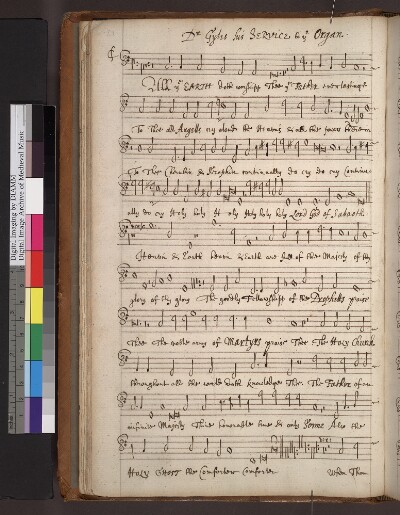 Dr Gyles his SERVICE to ye Organ.
All ye EARTH doth worship Thee ye Father everlastinge
To Thee all Angels cry aloud the Heavens & all the powers therein
To Thee Cherubin & Seraphin continually do cry do cry Continu
ally do cry Holy holy Holy holy holy holy Lord God of Sabaoth
Heaven & Earth heaven & Earth are full of thee Majesty of thy
glory of thy glory The goodly Fellowship of the Prophets praise
Thee The noble army of Martyrs praise Thee The Holy Church
throughout all the world doth knowledge Thee. The Father of an
infinite Majesty Thine honorable true & only Sonne Also the
HOLY GHOST the Comforter Comforter When Thou
Digital Imaging by DIAMM
Digital Image Archive of Medieval Music